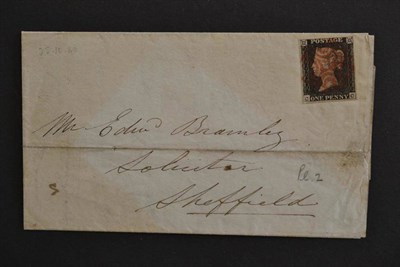 POSTAGE
ONE PENNY
Mr Edwd Bramley
Solicitor
Sheffield
Pl. 2